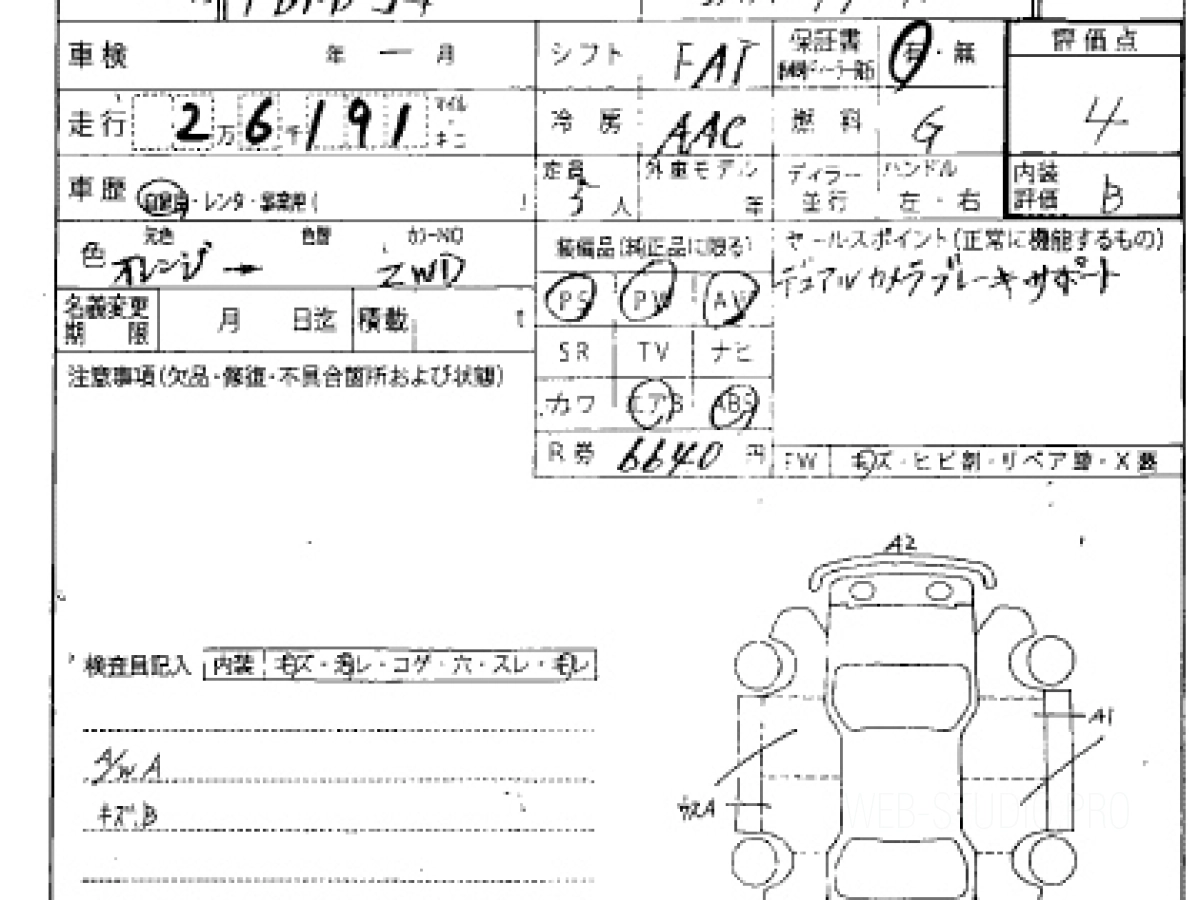 車検 年 ー 月 シフト FAT 保証書 有・無 評価点
走行 2万6千191 マイル キロ 冷房 AAC 燃料 G 4
車歴 自家用・レンタ・事業用( ) 定員 5人 外車モデル 年 ディラー 並行 ハンドル 左・右 内装評価 B
色 元色 オレンジ → 色替 カラーNO ZWD 装備品(純正品に限る) セールスポイント(正常に機能するもの)
デュアルカメラブレーキサポート
名義変更期限 月 日迄 積載 t PS PW AW
SR TV ナビ
注意事項(欠品・修復・不具合箇所および状態)
カワ エアB ABS
R券 6640 円 FW キズ・ヒビ割・リペア跡・X要
A2
検査員記入 内装 キズ・汚レ・コゲ・穴・スレ・モレ
A1
A/W A
ウスA
キズ.B
WEB-STUDIO.PRO